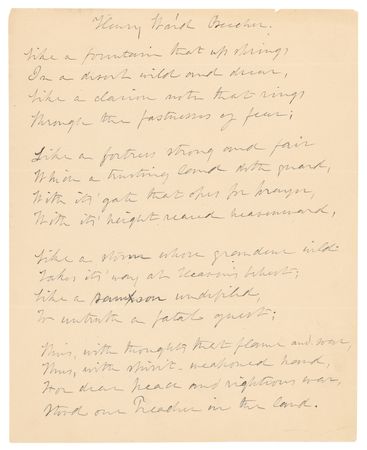 Henry Ward Beecher.
Like a fountain that up springs
In a desert wild and drear,
Like a clarion note that rings
Through the fastnesses of fear;
Like a fortress strong and fair
Which a trusting land doth guard,
With its' gate that opes for prayer,
With its' height reared heavenward,
Like a storm whose grandeur wild
Takes its' way at Heaven's behest;
Like a Samson undefiled,
To untruth a fatal guest;
Thus, with thoughts that flame and war,
Thus, with spirit-weaponed hand,
For dear peace and righteous war,
Stood our Preacher in the land.